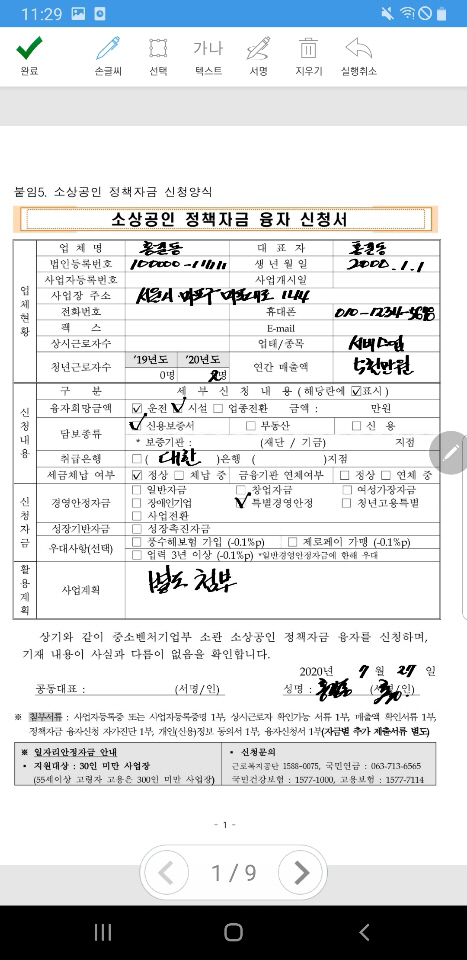 11:29
완료 손글씨 선택 가나 텍스트 서명 지우기 실행취소
붙임5. 소상공인 정책자금 신청양식
소상공인 정책자금 융자 신청서
업체현황
업 체 명 홍길동 대 표 자 홍길동
법인등록번호 100000-11111 생 년 월 일 2000.1.1
사업자등록번호 사업개시일
사업장 주소 서울시 마포구 마포대로 144
전화번호 휴대폰 010-1234-5678
팩 스 E-mail
상시근로자수 업태/종목 서비스업
청년근로자수 '19년도 '20년도 연간 매출액 5천만원
0명 2명
신청내용
구 분 세 부 신 청 내 용 (해당란에 ☑표시)
융자희망금액 ☑ 운전 ☑ 시설 □ 업종전환 금액 : 만원
담보종류 ☑ 신용보증서 □ 부동산 □ 신 용
* 보증기관 : (재단 / 기금) 지점
취급은행 □ ( 대한 )은행 ( )지점
세금체납 여부 ☑ 정상 □ 체납 중 금융기관 연체여부 □ 정상 □ 연체 중
신청자금
경영안정자금 □ 일반자금 □ 창업자금 □ 여성가장자금
□ 장애인기업 ☑ 특별경영안정 □ 청년고용특별
□ 사업전환
성장기반자금 □ 성장촉진자금
우대사항(선택) □ 풍수해보험 가입 (-0.1%p) □ 제로페이 가맹 (-0.1%p)
□ 업력 3년 이상 (-0.1%p) *일반경영안정자금에 한해 우대
활용계획
사업계획 별도 첨부
상기와 같이 중소벤처기업부 소관 소상공인 정책자금 융자를 신청하며,
기재 내용이 사실과 다름이 없음을 확인합니다.
2020년 7 월 27 일
공동대표 : (서명/인) 성명 : 홍길동 (서명/인)
※ 첨부서류 : 사업자등록증 또는 사업자등록증명 1부, 상시근로자 확인가능 서류 1부, 매출액 확인서류 1부,
정책자금 융자신청 자가진단 1부, 개인(신용)정보 동의서 1부, 융자신청서 1부(자금별 추가 제출서류 별도)
※ 일자리안정자금 안내
• 지원대상 : 30인 미만 사업장
(55세이상 고령자 고용은 300인 미만 사업장)
• 신청문의
근로복지공단 1588-0075, 국민연금 : 063-713-6565
국민건강보험 : 1577-1000, 고용보험 : 1577-7114
- 1 -
1/9